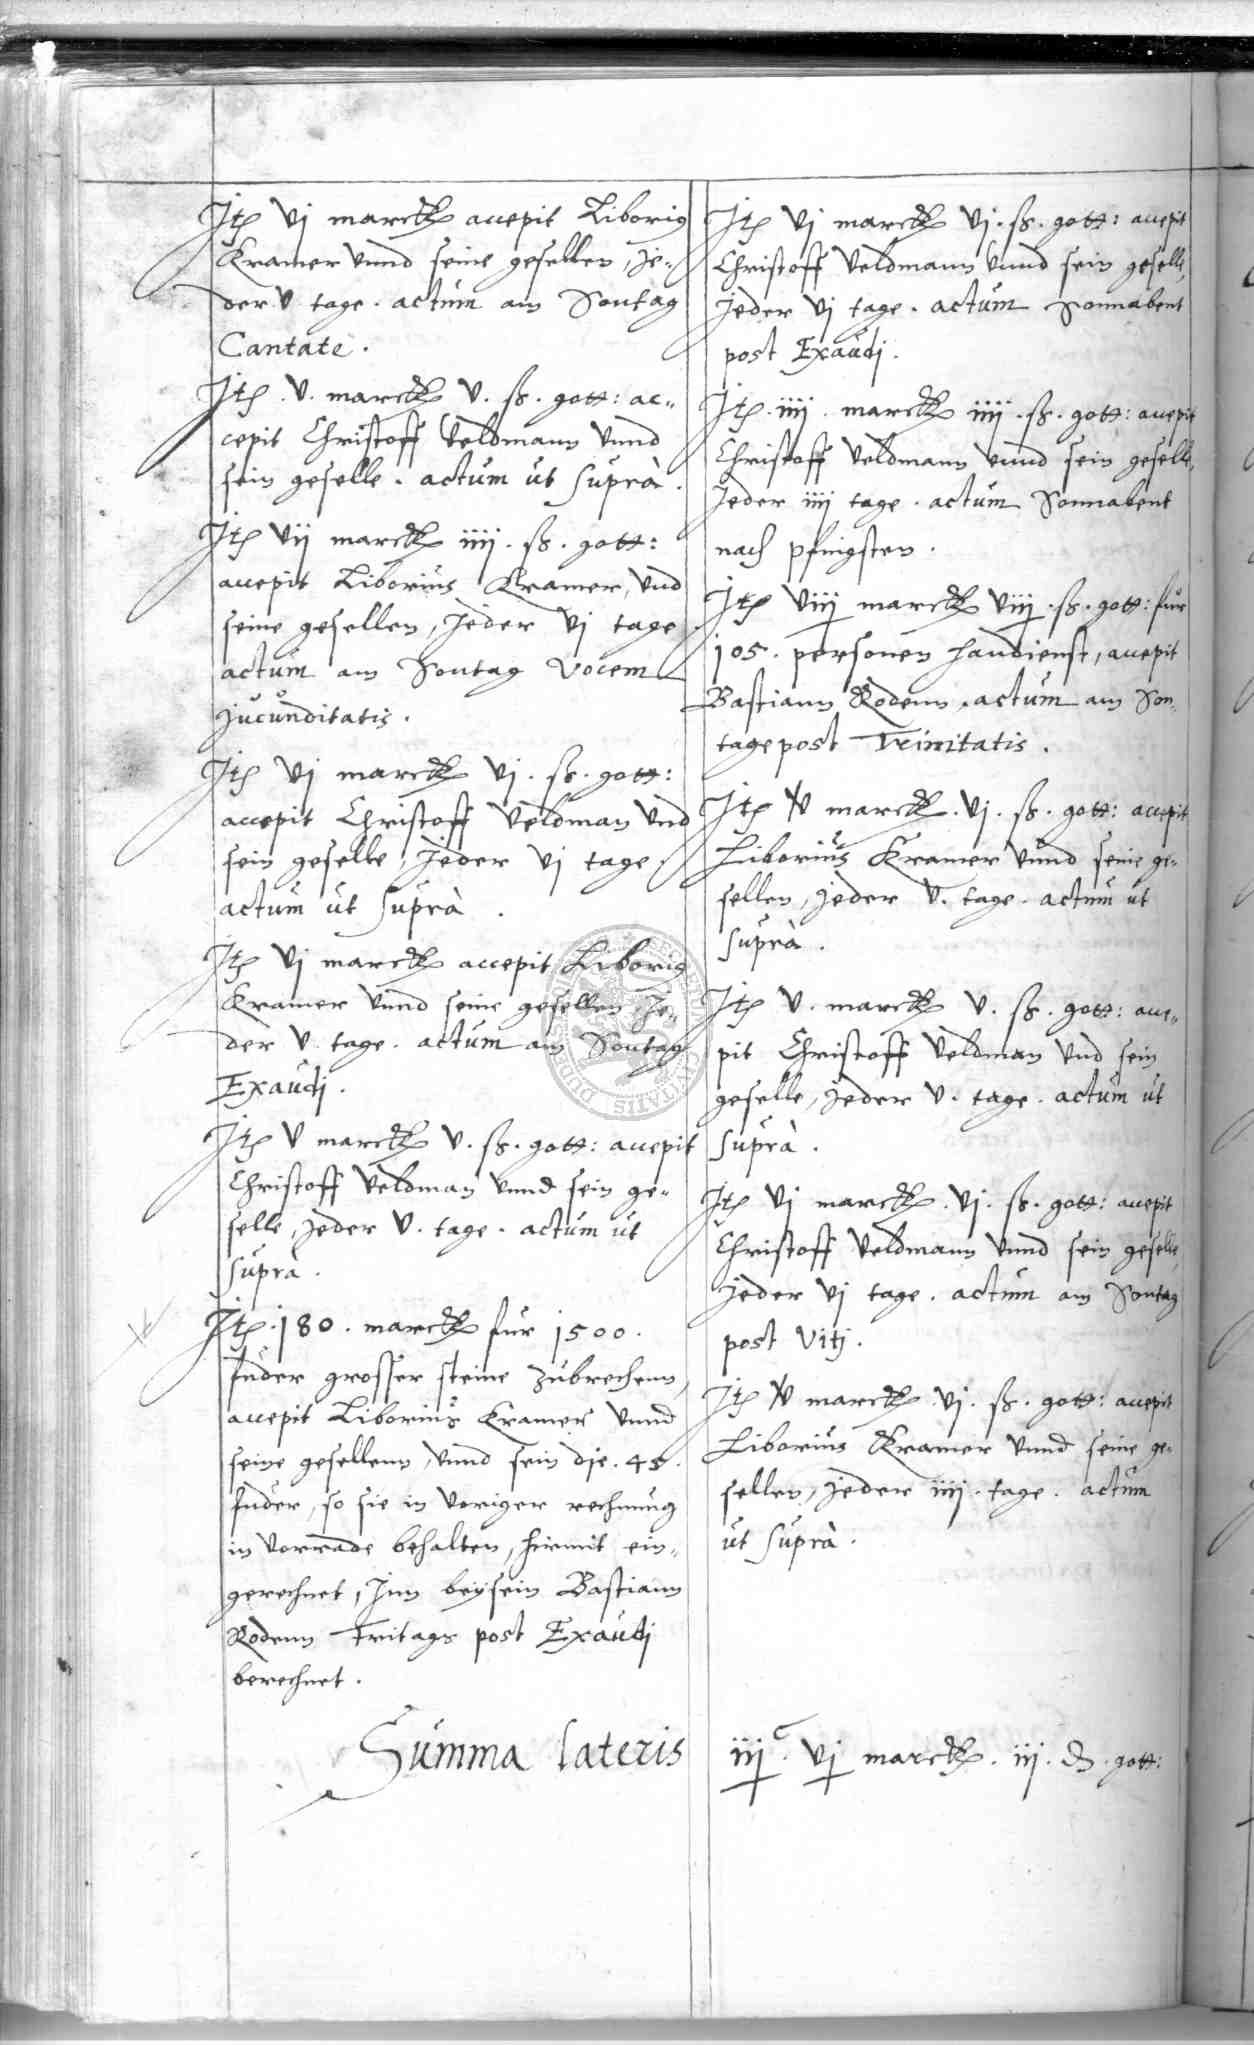 Itẽ vj marck accepit Liborig
Kramer vnnd seine gesellen, Je-
der v tage. actum am Sontag
Cantate.
Itẽ. v. marck v. ß. gott: ac-
cepit Christoff Veldmann vnnd
sein geselle. actum ut suprà.
Itẽ vij marck iiij. ß. gott:
accepit Liborius Kramer, vnd
seine gesellen, Jeder vj tage
actum am Sontag Vocem
jucunditatis.
Itẽ vj marck vj. ß. gott:
accepit Christoff Veldman vnd
sein geselle, Jeder vj tage
actum ut suprà.
Itẽ vj marck accepit Liborig
Kramer vnnd seine gesellen Je-
der v tage. actum am Sontag
Exaudj.
Itẽ v marck v. ß. gott: accepit
Christoff Veldman vnnd sein ge-
selle, Jeder v. tage. actum ut
suprà.
Itẽ. 180. marck fur 1500.
fuder grosser steine zubrechenn,
accepit Liborius Kramer vnnd
seine gesellenn, vnnd sein die. 45.
fuder, so sie in voriger rechnung
in vorrade behalten, hirmit ein-
gerechnet, Jnn beysein Bastiann
Rodenn Fritags post Exaudj
berechnet.
Itẽ vj marck vj. ß. gott: accepit
Christoff Veldmann vnnd sein geselle,
Jeder vj tage. actum Sonnabent
post Exaudj.
Itẽ. iiij. marck iiij. ß. gott: accepit
Christoff Veldmann vnnd sein geselle,
Jeder iiij tage. actum Sonnabent
nach pfingsten.
Itẽ viij marck viij. ß. gott: fur
105. personen handienst, accepit
Bastiann Rodenn. actum am Son-
tage post Trinitatis.
Itẽ marck. vj. ß. gott: accepit
Liborius Kramer vnnd seine ge-
sellen, Jeder v. tage. actum ut
suprà.
Itẽ v. marck v. ß. gott: acce-
pit Christoff Veldman vnd sein
geselle, Jeder v. tage. actum ut
suprà.
Itẽ vj marck. vj. ß. gott: accepit
Christoff Veldmann vnnd sein geselle,
Jeder vj tage. actum am Sontag
post Vitj.
Itẽ marck vj. ß. gott: accepit
Liborius Kramer vnnd seine ge-
sellen, Jeder iiij. tage. actum
ut suprà.
Summa lateris iijᶜ. vj marck. iij. d. gott: